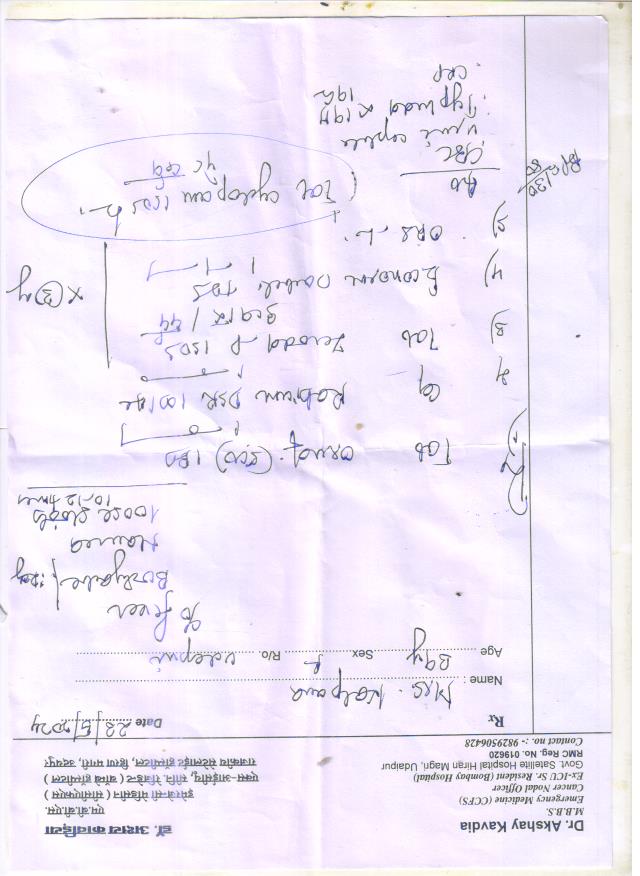 Dr. Akshay Kavdia
M.B.B.S.
Emergency Medicine (CCFS)
Cancer Nodal Officer
Ex-ICU Sr. Resident (Bombay Hospital)
Govt. Satellite Hospital Hiran Magri, Udaipur
RMC Reg. No. 019620
Contact no. :- 9829506428
डॉ. अक्षय कावड़िया
एम.बी.बी.एस.
इमरजेन्सी मेडीसीन ( सीसीएफएस )
एक्स-आईसीयू सीनि. रेजिडेन्ट ( बॉम्बे हॉस्पीटल )
राजकीय सेटेलाईट हॉस्पीटल, हिरण मगरी, उदयपुर
Rx
Date 22/5/2024
Name : Mrs. Kalpana
Age 39y Sex F R/o Udaipur
c/o fever
Bodyache
Nausea
loose stools
10-12 times
Tab
Cap Rabium DSR
3) Tab Zerodol-P
4) Econorm
5) ORS
Tab cyclopam
BP 130
80
Adv
CBC
Urine complete
Typhidot IgM
IgG
CRP